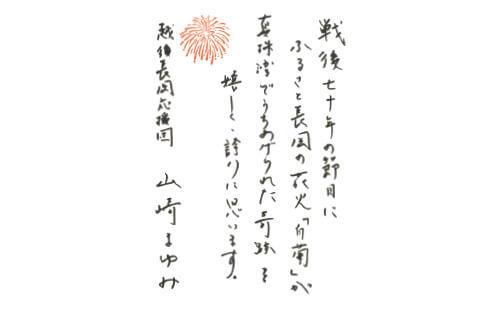 戦後七十年の節目に
ふるさと長岡の花火「白菊」が
真珠湾でうちあげられた奇跡を
嬉しく、誇りに思います。
越後長岡応援団 山崎まゆみ